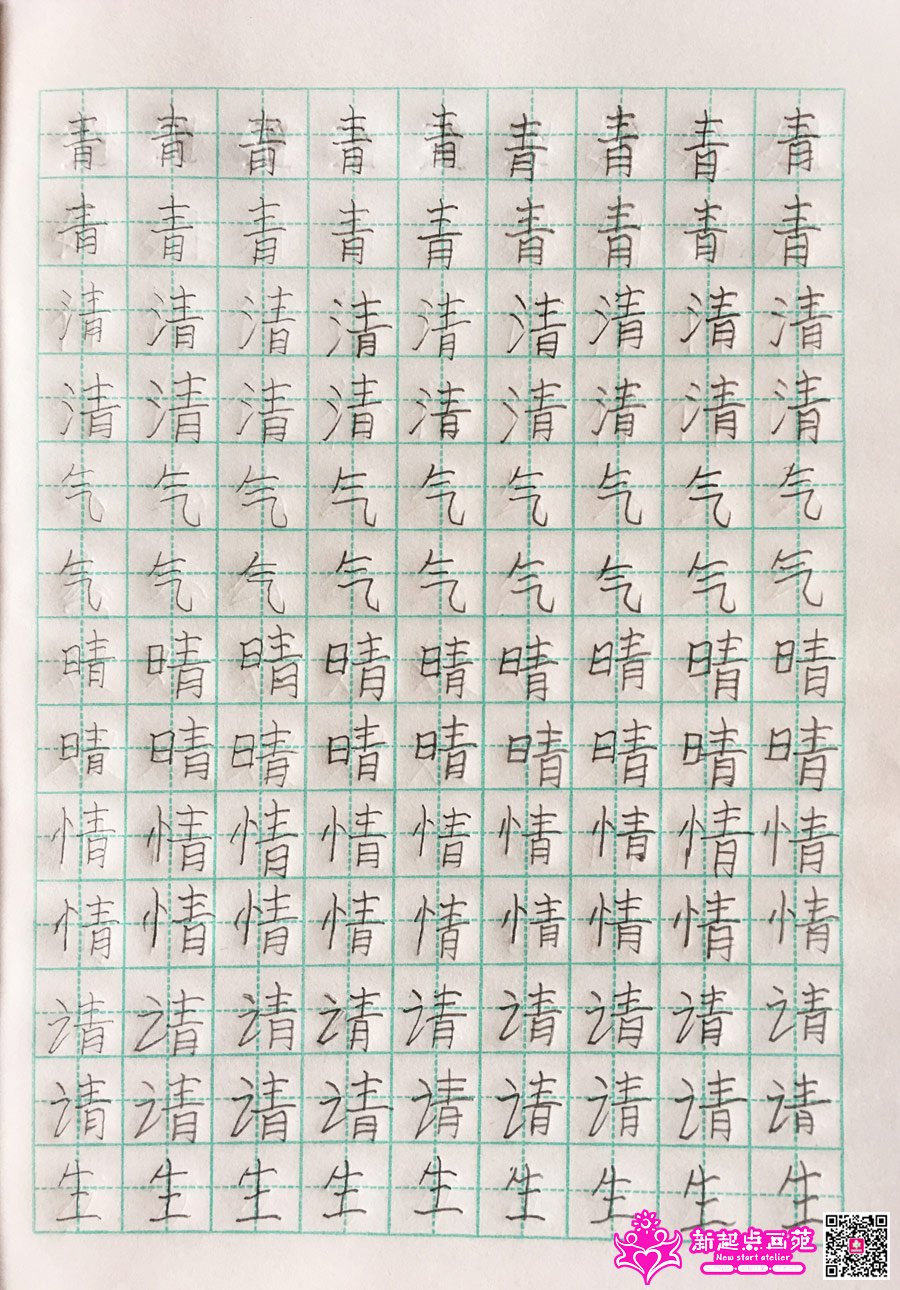 青青青青青青青青青
青青青青青青青青青
清清清清清清清清清
清清清清清清清清清
气气气气气气气气气
气气气气气气气气气
晴晴晴晴晴晴晴晴晴
晴晴晴晴晴晴晴晴晴
情情情情情情情情情
情情情情情情情情情
请请请请请请请请请
请请请请请请请请请
生生生生生生生生生
新起点画苑
New start atelier